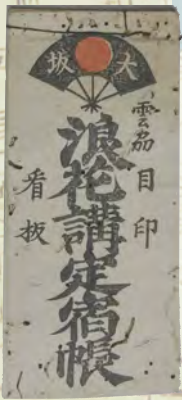 大坂
目印
浪花講定宿帳
看板